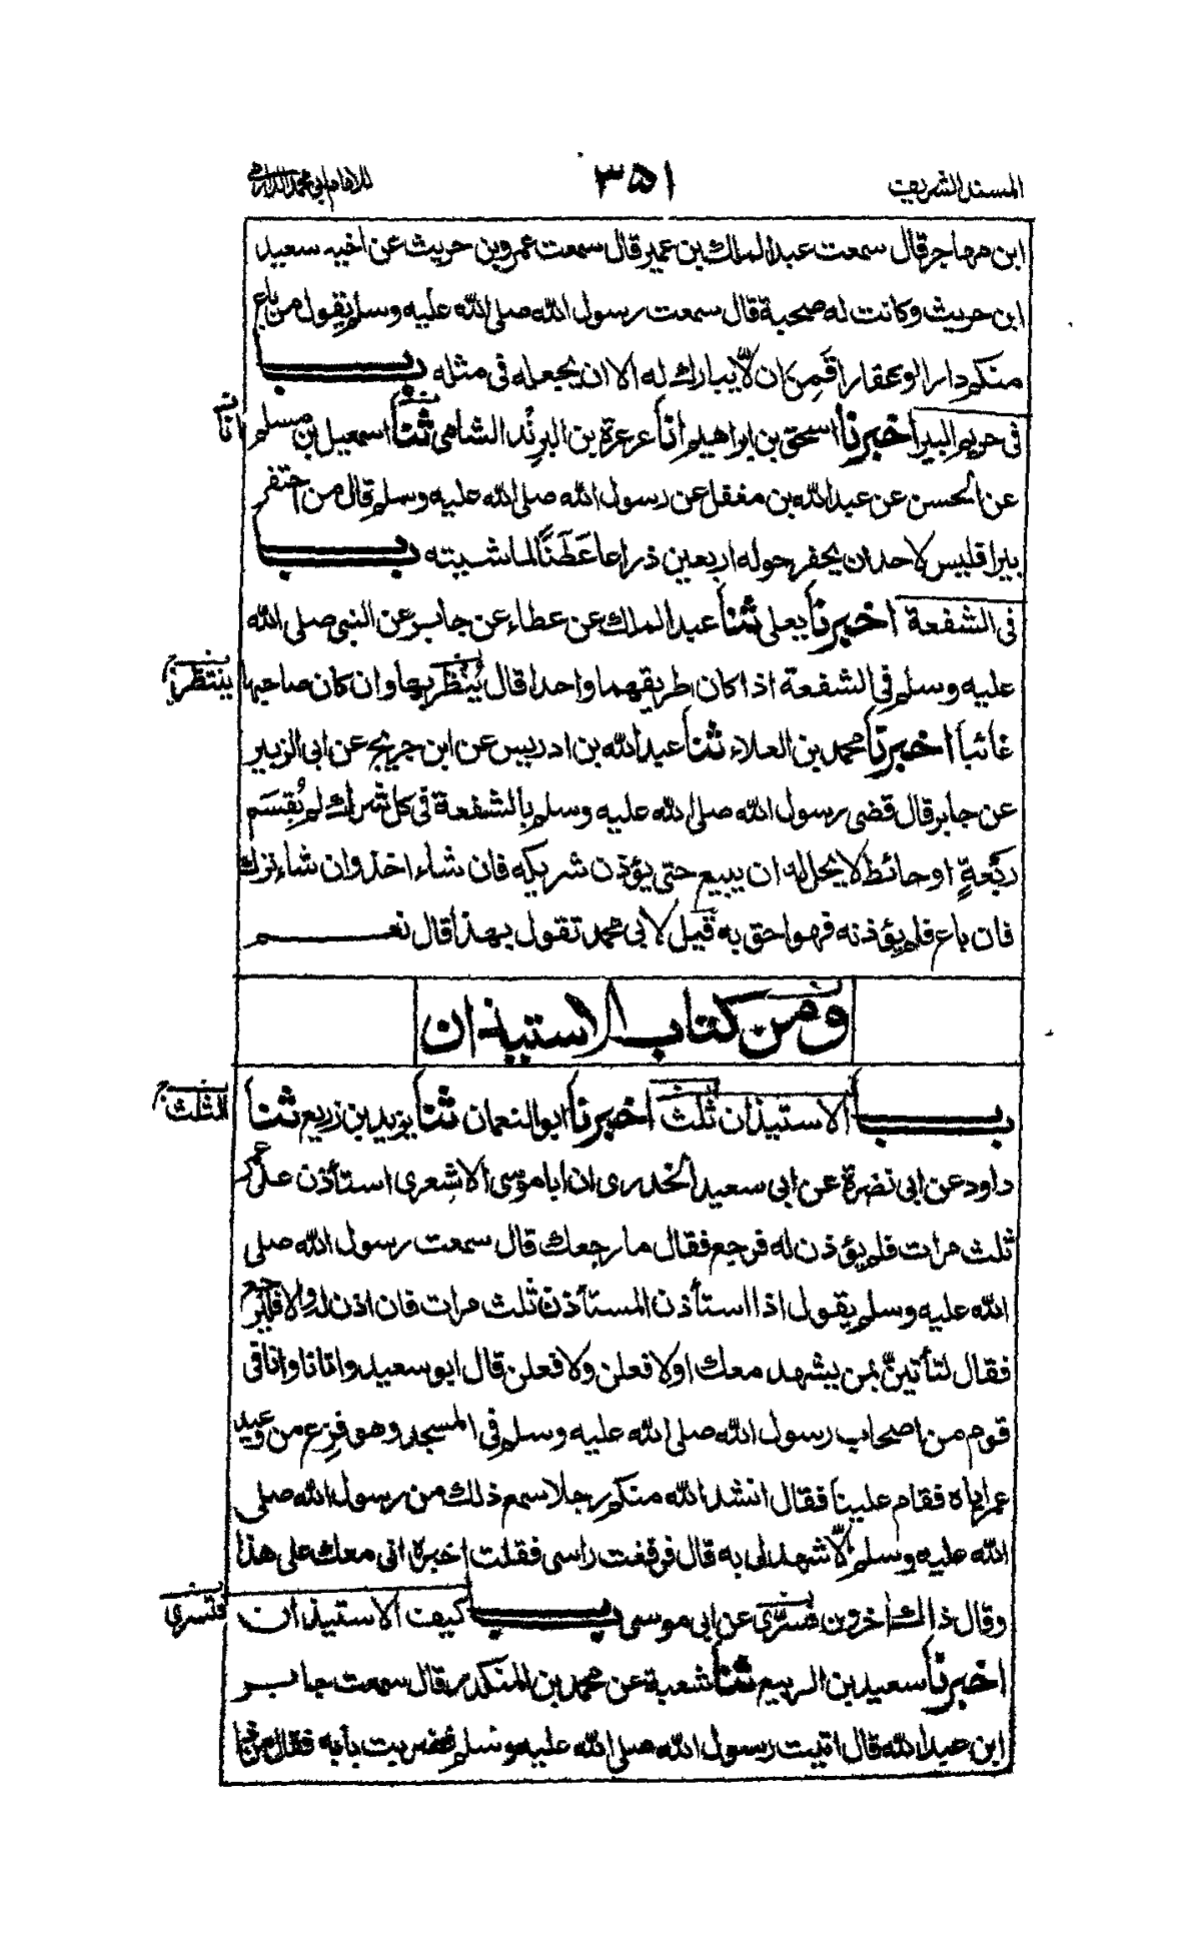 المسند الشريف ٣٥١ للامام ابى محمد الدارمى
ابن مهاجر قال سمعت عبد الملك بن عمير قال سمعت عمرو بن حريث عن اخيه سعيد
ابن حريث وكانت له صحبة قال سمعت رسول الله صلى الله عليه وسلم يقول من باع
منكم دارا او عقارا قَمِن ان لّا يبارك له الا ان يجعله فى مثله باب
فى حريم البير اخبرنا اسحق بن ابراهيم انا عرعرة بن البرِنْد الشامى ثنا اسمعيل بن مسلم انا
عن الحسن عن عبد الله بن مغفل عن رسول الله صلى الله عليه وسلم قال من احتفر
بيرا فليس لاحد ان يحفر حوله اربعين ذراعا عَطَنًا لماشيته باب
فى الشفعة اخبرنا يعلى ثنا عبد الملك عن عطاء عن جابر عن النبى صلى الله
عليه وسلم فى الشفعة اذا كان طريقهما واحدا قال يُنْظر بها وان كان صاحبها ينتظر
غائبا اخبرنا محمد بن العلاء ثنا عبد الله بن ادريس عن ابن جريج عن ابى الزبير
عن جابر قال قضى رسول الله صلى الله عليه وسلم بالشفعة فى كل شرك لم يُقسَم
رَبْعةٍ او حائط لا يحل له ان يبيع حتى يؤذن شريكه فان شاء اخذ وان شاء ترك
فان باع فلم يؤذنه فهو احق به قيل لابى محمد تقول بهذا قال نعم
ومن كتاب الاستيذان
باب الاستيذان ثلث اخبرنا ابو النعمان ثنا يزيد بن زريع ثنا الثلث
داود عن ابى نضرة عن ابى سعيد الخدرى ان ابا موسى الاشعرى استأذن على عمر
ثلث مرات فلم يؤذن له فرجع فقال ما رجعك قال سمعت رسول الله صلى
الله عليه وسلم يقول اذا استأذن المستأذن ثلث مرات فان اذن له والا فليرجع
فقال لتأتينّ بمن يشهد معك او لافعلن ولافعلن قال ابو سعيد واتانا وانا فى
قوم من اصحاب رسول الله صلى الله عليه وسلم فى المسجد وهو فزع من وعيد
عمر اياه فقام علينا فقال انشد الله منكم رجلا سمع ذلك من رسول الله صلى
الله عليه وسلم الّا شهد لى به قال فرفعت راسى فقلت اخبره انى معك على هذا
وقال ذاك اخرون فسُرّى عن ابى موسى باب كيف الاستيذان فتسرى
اخبرنا سعيد بن الربيع ثنا شعبة عن محمد بن المنكدر قال سمعت جابر
ابن عبد الله قال اتيت رسول الله صلى الله عليه وسلم فضربت بابه فقال من ذا